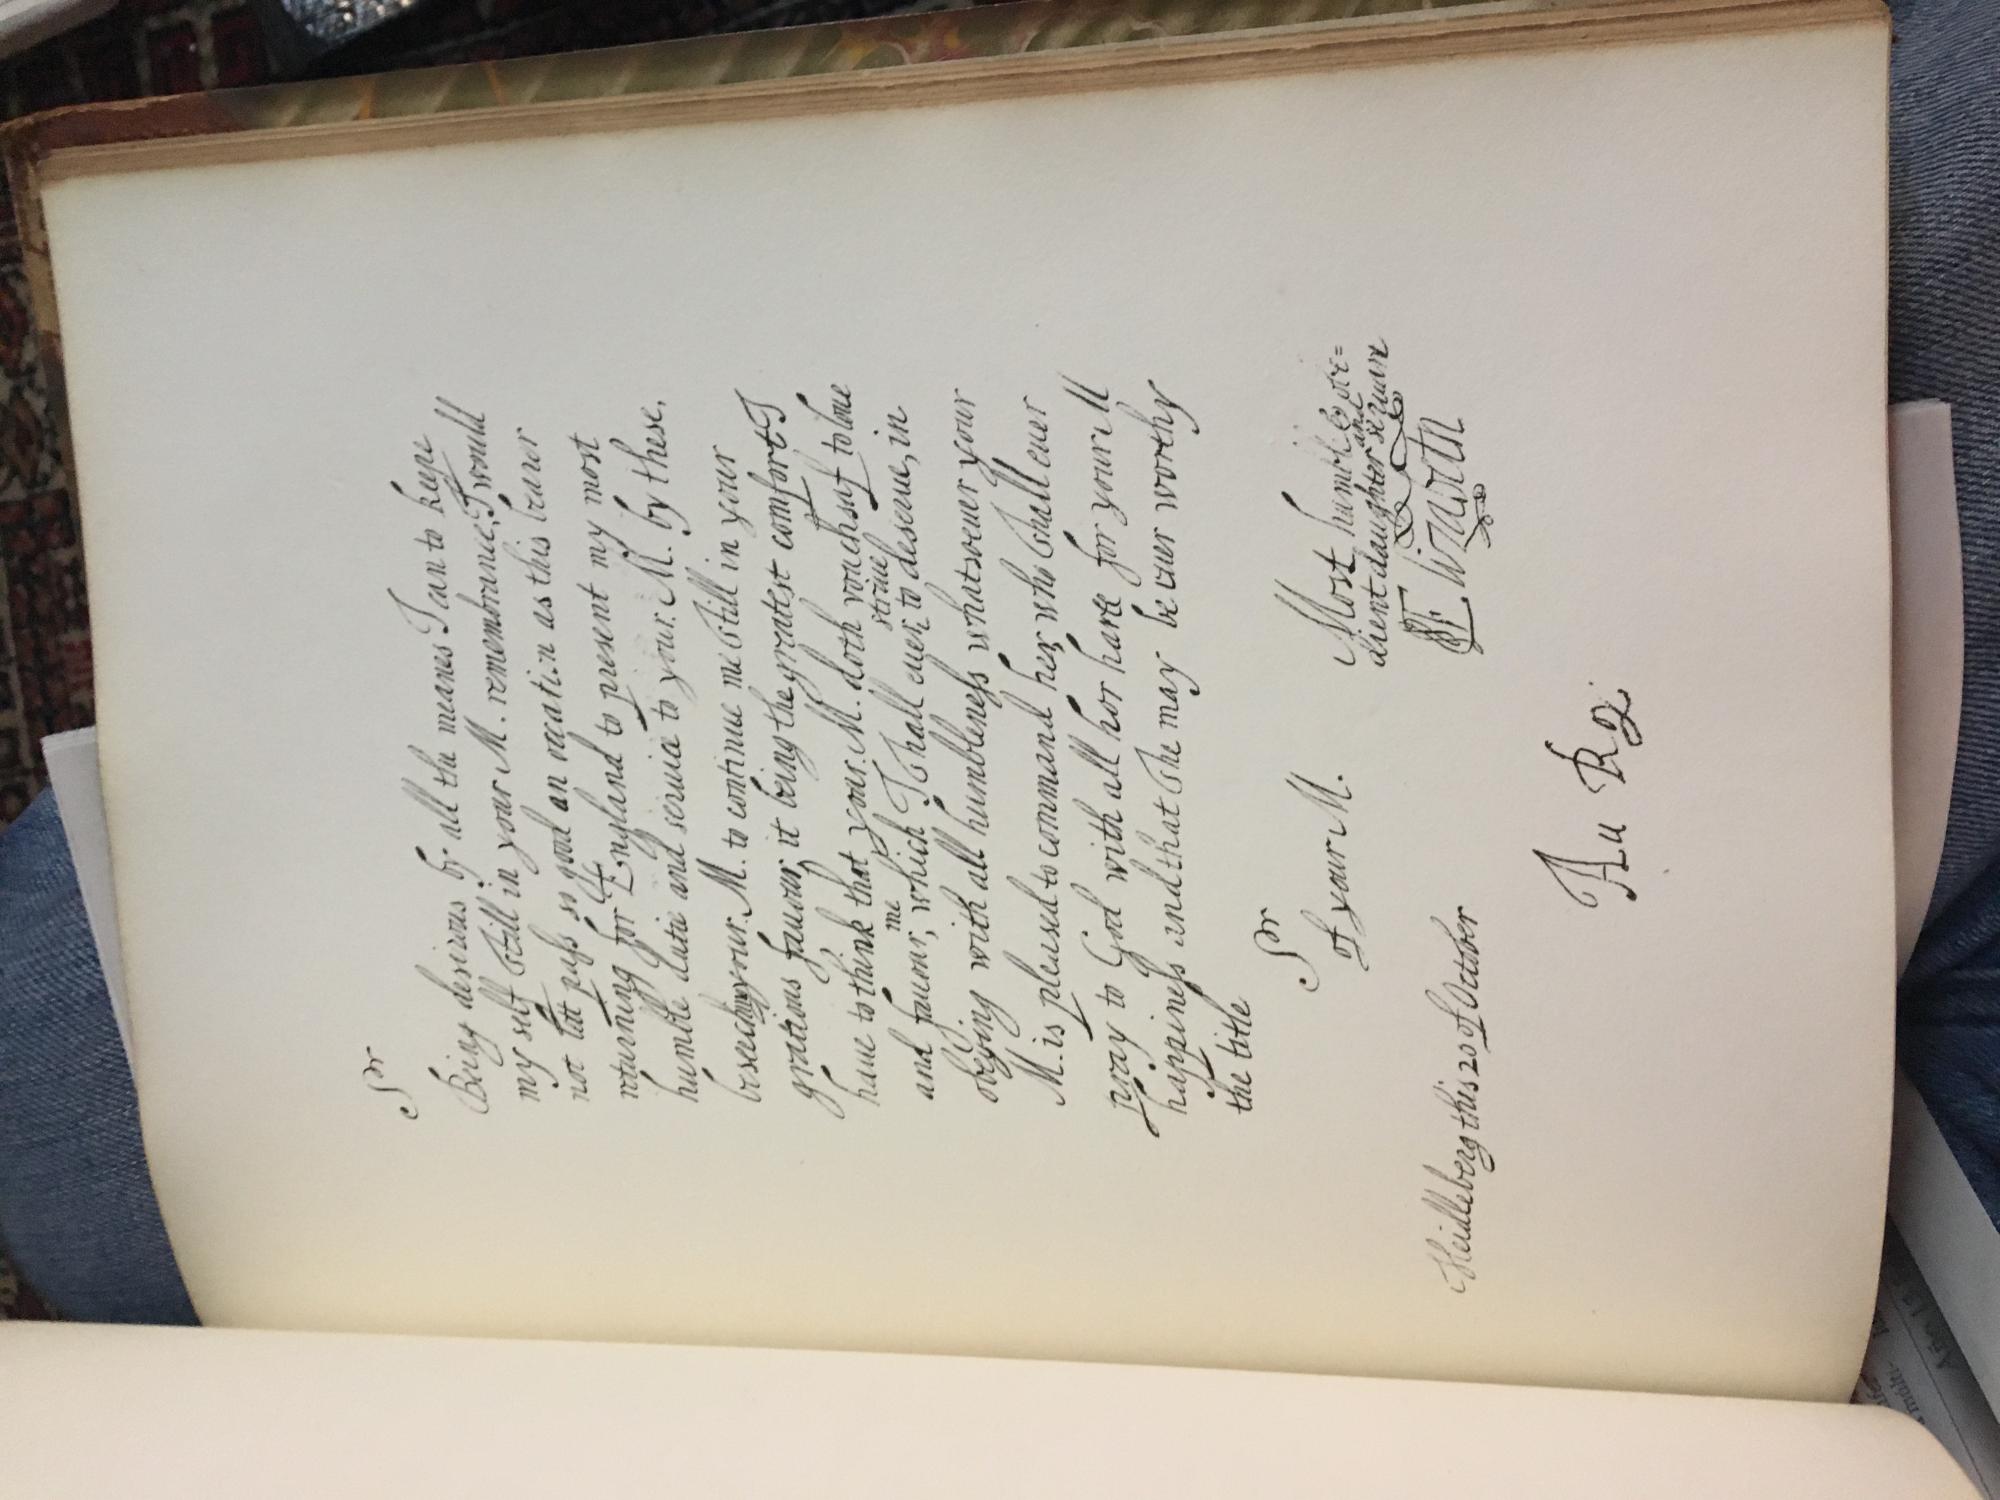 Sr
Being desirous by all the meanes I can to keepe
my self still in your M. remembrance, I would
not lett pass so good an occation as this bearer
returning for England to present my most
humble dutie and seruice to your M. by these,
beseeching your M. to continue me still in your
gratious fauour, it being the greatest comfort I
haue to think that your M. doth vouchsaf to loue
me striue
and fauour, which I shall euer to deserue, in
obeying with all humbleness whatsoeuer your
M. is pleased to command her, who shall euer
pray to God with all hor harte for your M
happiness and that she may be euer worthy
the title
Sr
of your M.
Most humble & obe=
dient daughter and seruant
Elizabeth
Heidleberg this 20 of October
Au Roy